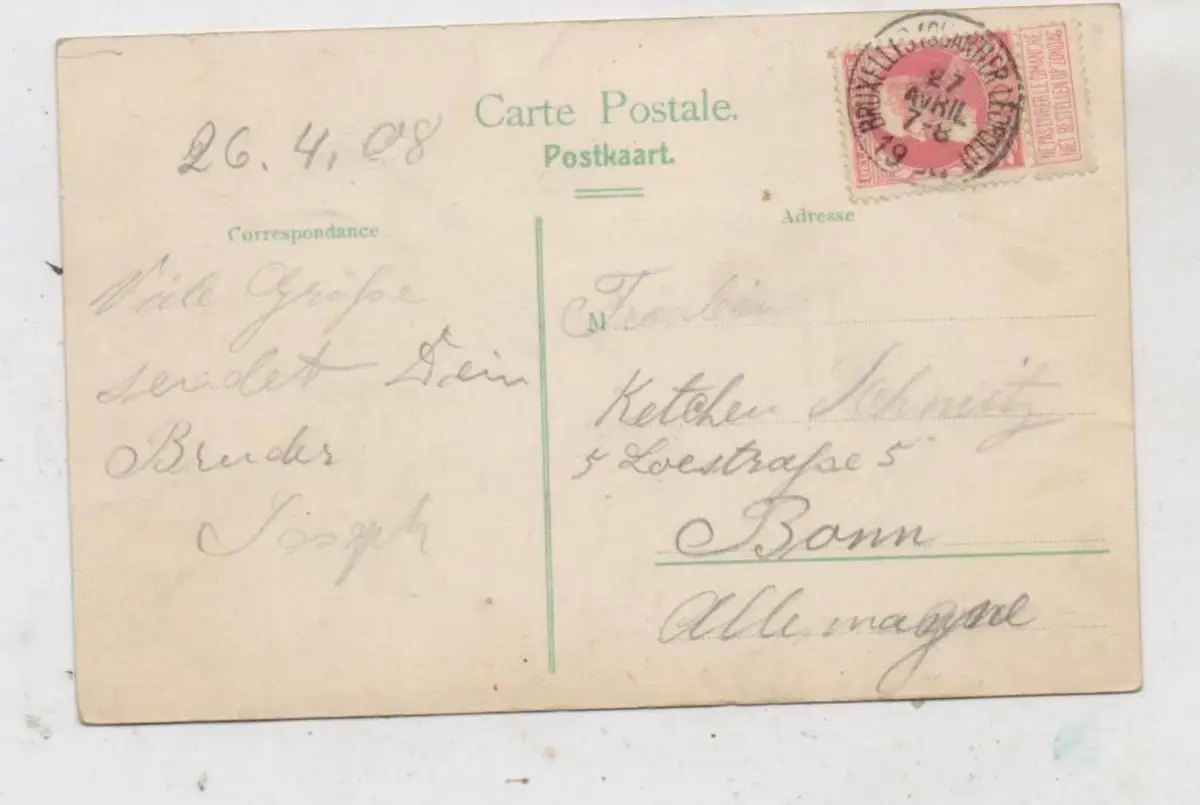 Carte Postale.
Postkaart.
26. 4. 08
Correspondance
Viele Grüße
sendet Dein
Bruder
Joseph
BRUXELLES (QUARTIER LEOPOLD)
27
AVRIL
7-8
19
NE PAS LIVRER LE DIMANCHE
NIET BESTELLEN OP ZONDAG
Adresse
M Fraulein
Ketchen Schmitz
5 Loestraße 5
Bonn
Allemagne